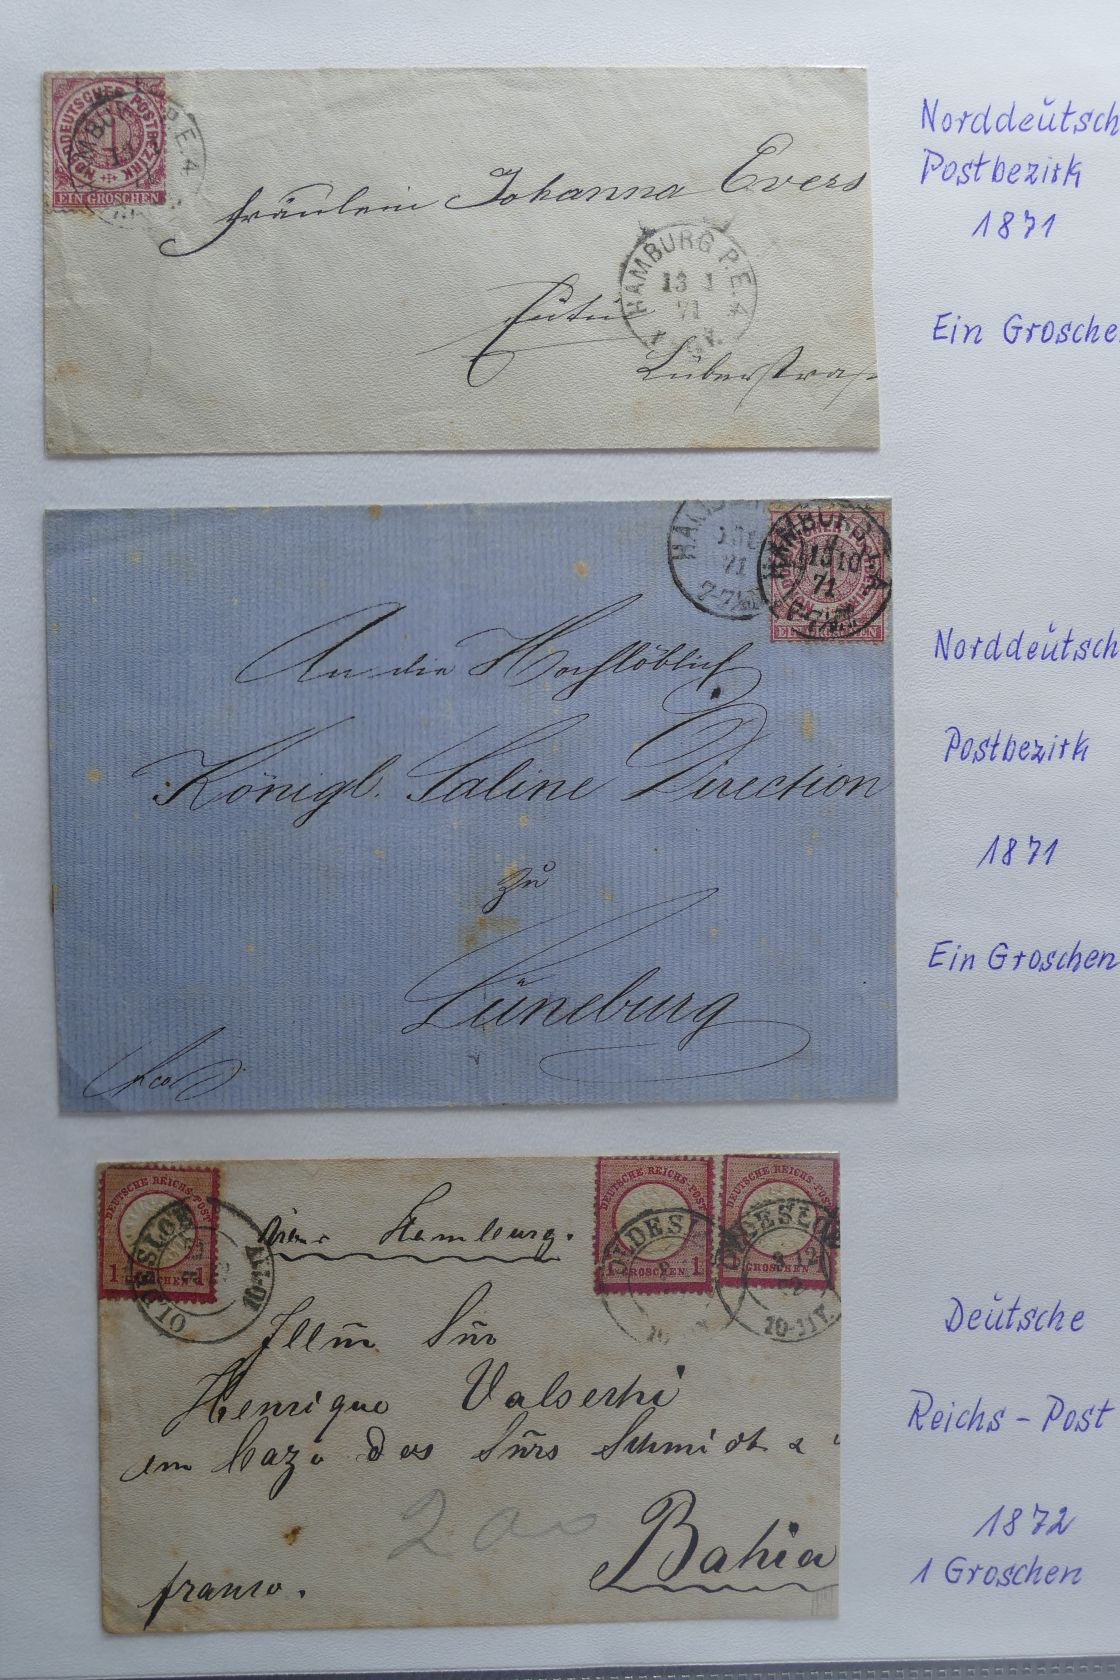 NORDDEUTSCHER POSTBEZIRK
EIN GROSCHEN
HAMBURG P.E.4
Fräulein Johanna Evers
HAMBURG P.E.4
13 1
71
Eutin
Norddeutsch
Postbezirk
1871
Ein Grosche
HAMBURG
71
HAMBURG
13 10
71
EIN GROSCHEN
An die Hochlöblich
Königl. Saline Direction
zu
Lüneburg
Norddeutsch
Postbezirk
1871
Ein Groschen
DEUTSCHE REICHS-POST
1 GROSCHEN 1
OLDESLOE
DEUTSCHE REICHS-POST
1 GROSCHEN 1
OLDESL
DEUTSCHE REICHS-POST
GROSCHEN 1
OLDESLOE
8 12
10-11 V.
Hamburg.
Illm Snr
Henrique
dos Snrs Schmidt &
200
Bahia
franco.
Deutsche
Reichs-Post
1872
1 Groschen